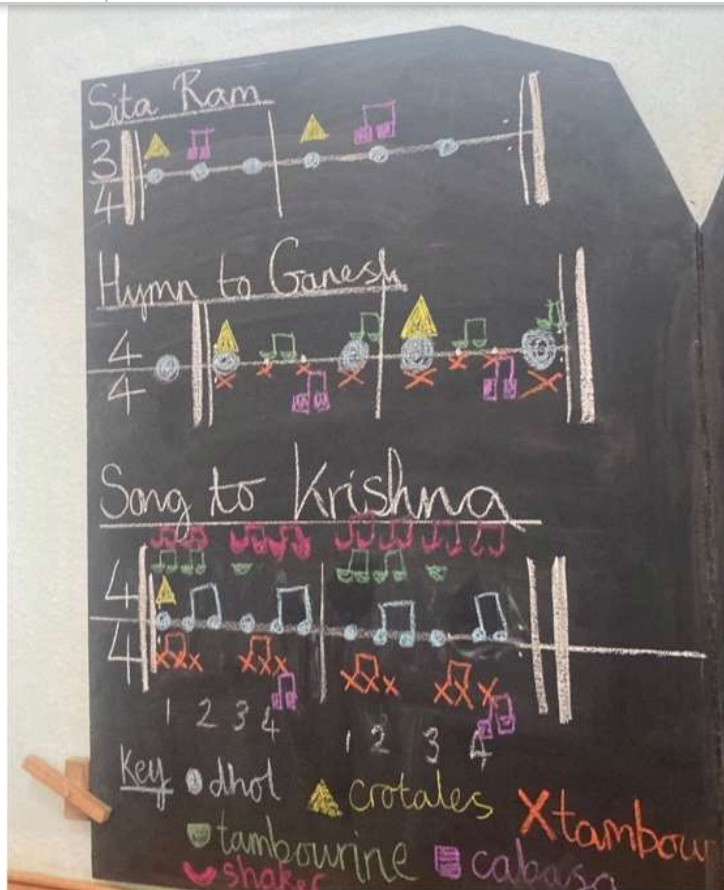 Sita Ram
3
4
Hymn to Ganesh
4
4
Song to Krishna
4
4
1 2 3 4 1 2 3 4
Key dhol crotales Xtambou
tambourine cabasa
shaker